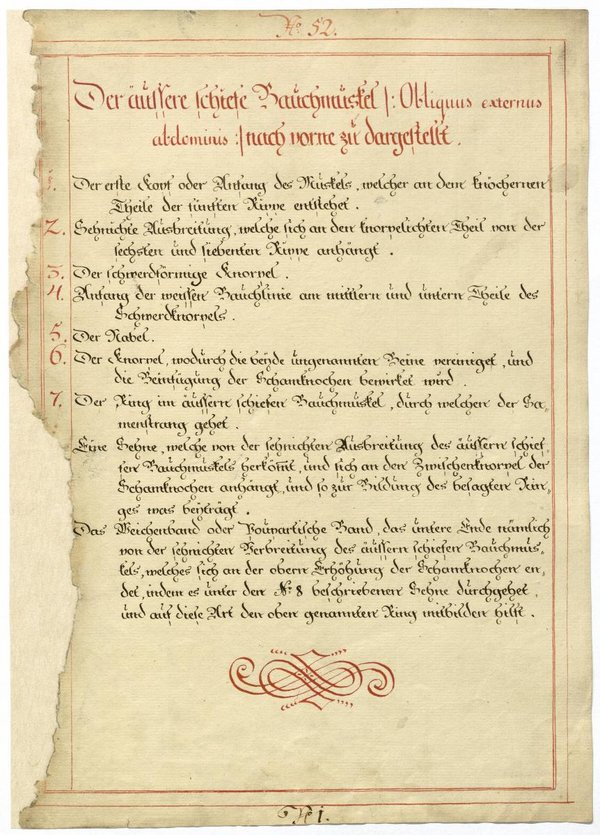 No. 52.
Der äussere schiefe Bauchmuskel /: Obliquus externus
abdominis :/ nach vorne zu dargestellt.
1. Der erste Kopf oder Anfang des Muskels, welcher an dem knöchernen
Theile der fünften Rippe entstehet.
2. Sehnichte Ausbreitung, welche sich an den knorpelichten Theil von der
sechsten und siebenten Rippe anhängt.
3. Der schwerdförmige Knorpel.
4. Anfang der weissen Bauchlinie am mittlern und untern Theile des
Schwerdknorpels.
5. Der Nabel.
6. Der Knorpel, wodurch die beyde ungenannten Beine vereiniget, und
die Beinfügung der Schamknochen bewirket wird.
7. Der Ring im äussern schiefen Bauchmuskel, durch welchen der Sa-
menstrang gehet.
Eine Sehne, welche von der sehnichten Ausbreitung des äussern schief-
fen Bauchmuskels herkomt, und sich an den Zwischenknorpel der
Schamknochen anhängt, und so zur Bildung des besagten Rin-
ges was beyträgt.
Das Weichenband oder Poupartische Band, das untere Ende nämlich
von der sehnichten Verbreitung des äussern schiefen Bauchmus-
kels, welches sich an der obern Erhöhung der Schamknochen en-
det, indem es unter der No. 8 beschriebenen Sehne durchgehet,
und auf diese Art den oben genannten Ring mitbilden hilft.
No 1.